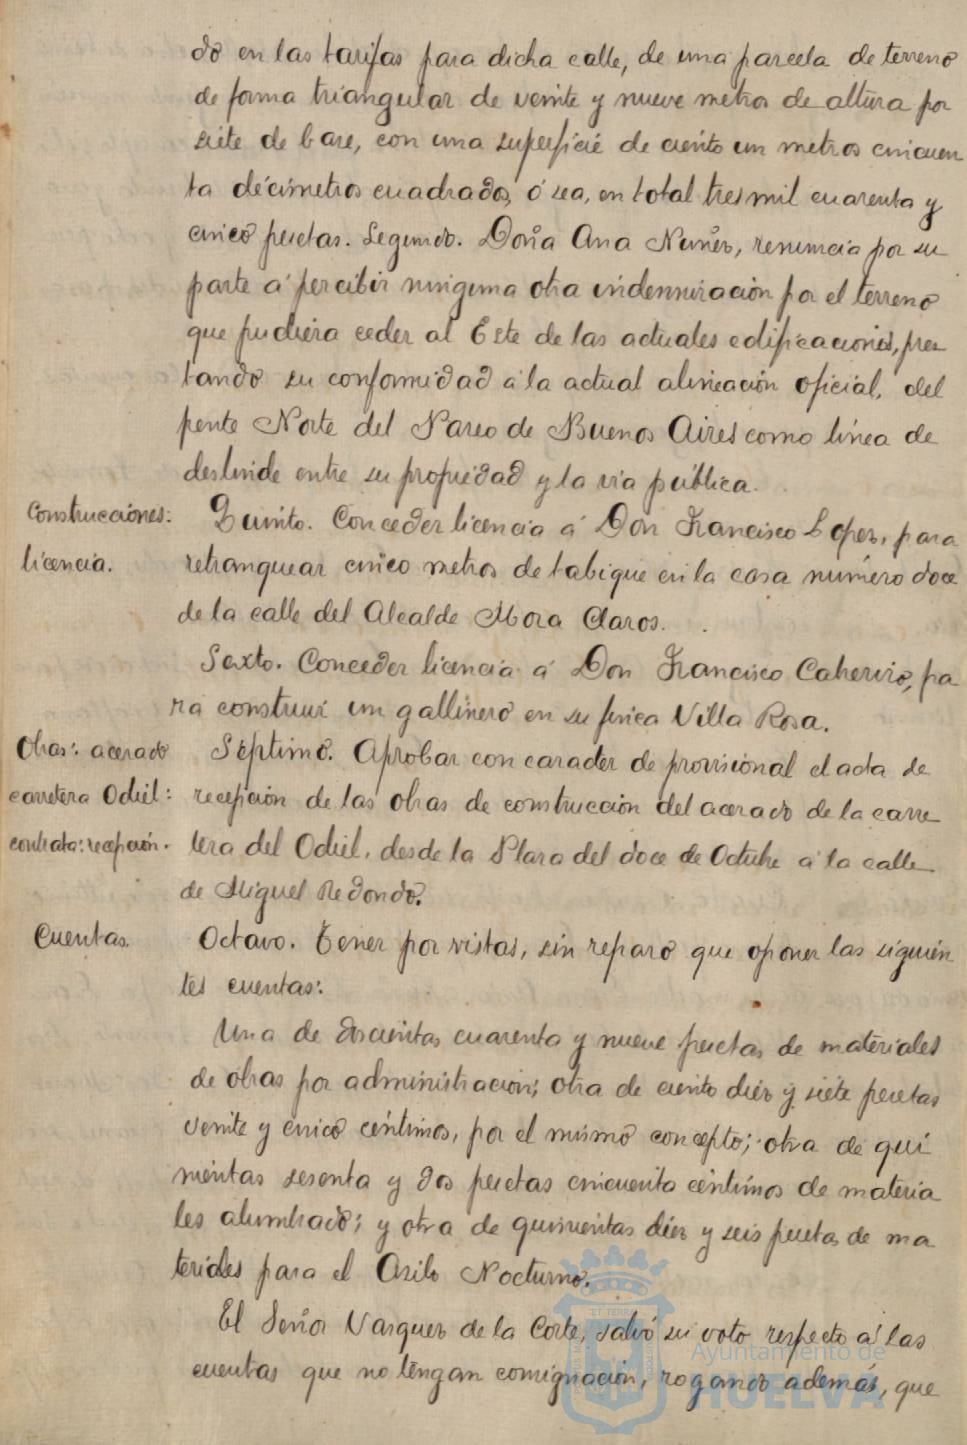 do en las tarifas para dicha calle, de una parcela de terreno
de forma triangular de veinte y nueve metros de altura por
siete de base, con una superficie de ciento un metros cincuen
ta décimetros cuadrados, ó sea, en total tres mil cuarenta y
cinco pesetas. Segundo. Doña Ana Nuñez, renuncia por su
parte á percibir ninguna otra indemnización por el terreno
que pudiera ceder al Este de las actuales edificaciones, pres
tando su conformidad á la actual alineación oficial, del
frente Norte del Paseo de Buenos Aires como línea de
deslinde entre su propiedad y la via pública.
Construcciones:
licencia.
Quinto. Conceder licencia á Don Francisco Lopez, para
retranquear cinco metros de tabique en la casa numéro doce
de la calle del Alcalde Mora Claros.
Sexto. Conceder licencia á Don Francisco para
ra construir un gallinero en su finca Villa Rosa.
Obras: acerado
carretera Odiel:
contrata: recepción.
Séptimo. Aprobar con caracter de provisional el acta de
recepción de las obras de construcción del acerado de la carre
tera del Odiel, desde la Plaza del doce de Octubre á la calle
de Miguel Redondo.
Cuentas.
Octavo. Tener por vistas, sin reparo que oponer las siguien
tes cuentas:
Una de doscientas cuarenta y nueve pesetas de materiales
de obras por administración; otra de ciento diez y siete pesetas
veinte y cinco céntimos, por el mismo concepto; otra de qui
nientas sesenta y dos pesetas cincuenta céntimos de materia
les alumbrado; y otra de quinientas diez y seis pesetas de ma
teriales para el Asilo Nocturno.
El Señor Vazquez de la Corte, salvó su voto respecto á las
cuentas que no tengan consignación, rogando además, que
Ayuntamiento de
HUELVA